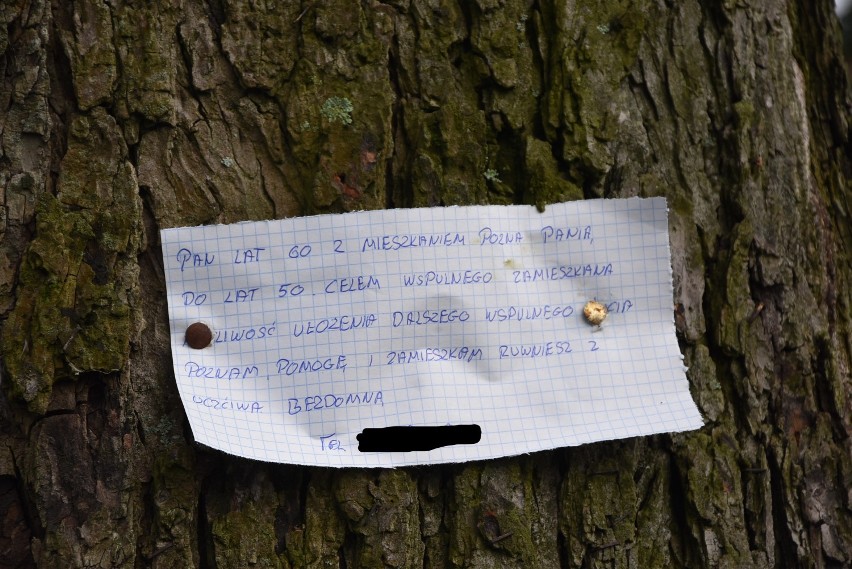 PAN LAT 60 Z MIESZKANIEM POZNA PANIĄ,
DO LAT 50. CELEM WSPULNEGO ZAMIESZKANA
UŁOŻENIA DALSZEGO WSPULNEGO
POZNAM, POMOGĘ I ZAMIESZKAM RUWNIESZ Z
UCZCIWA BEZDOMNA
TEL